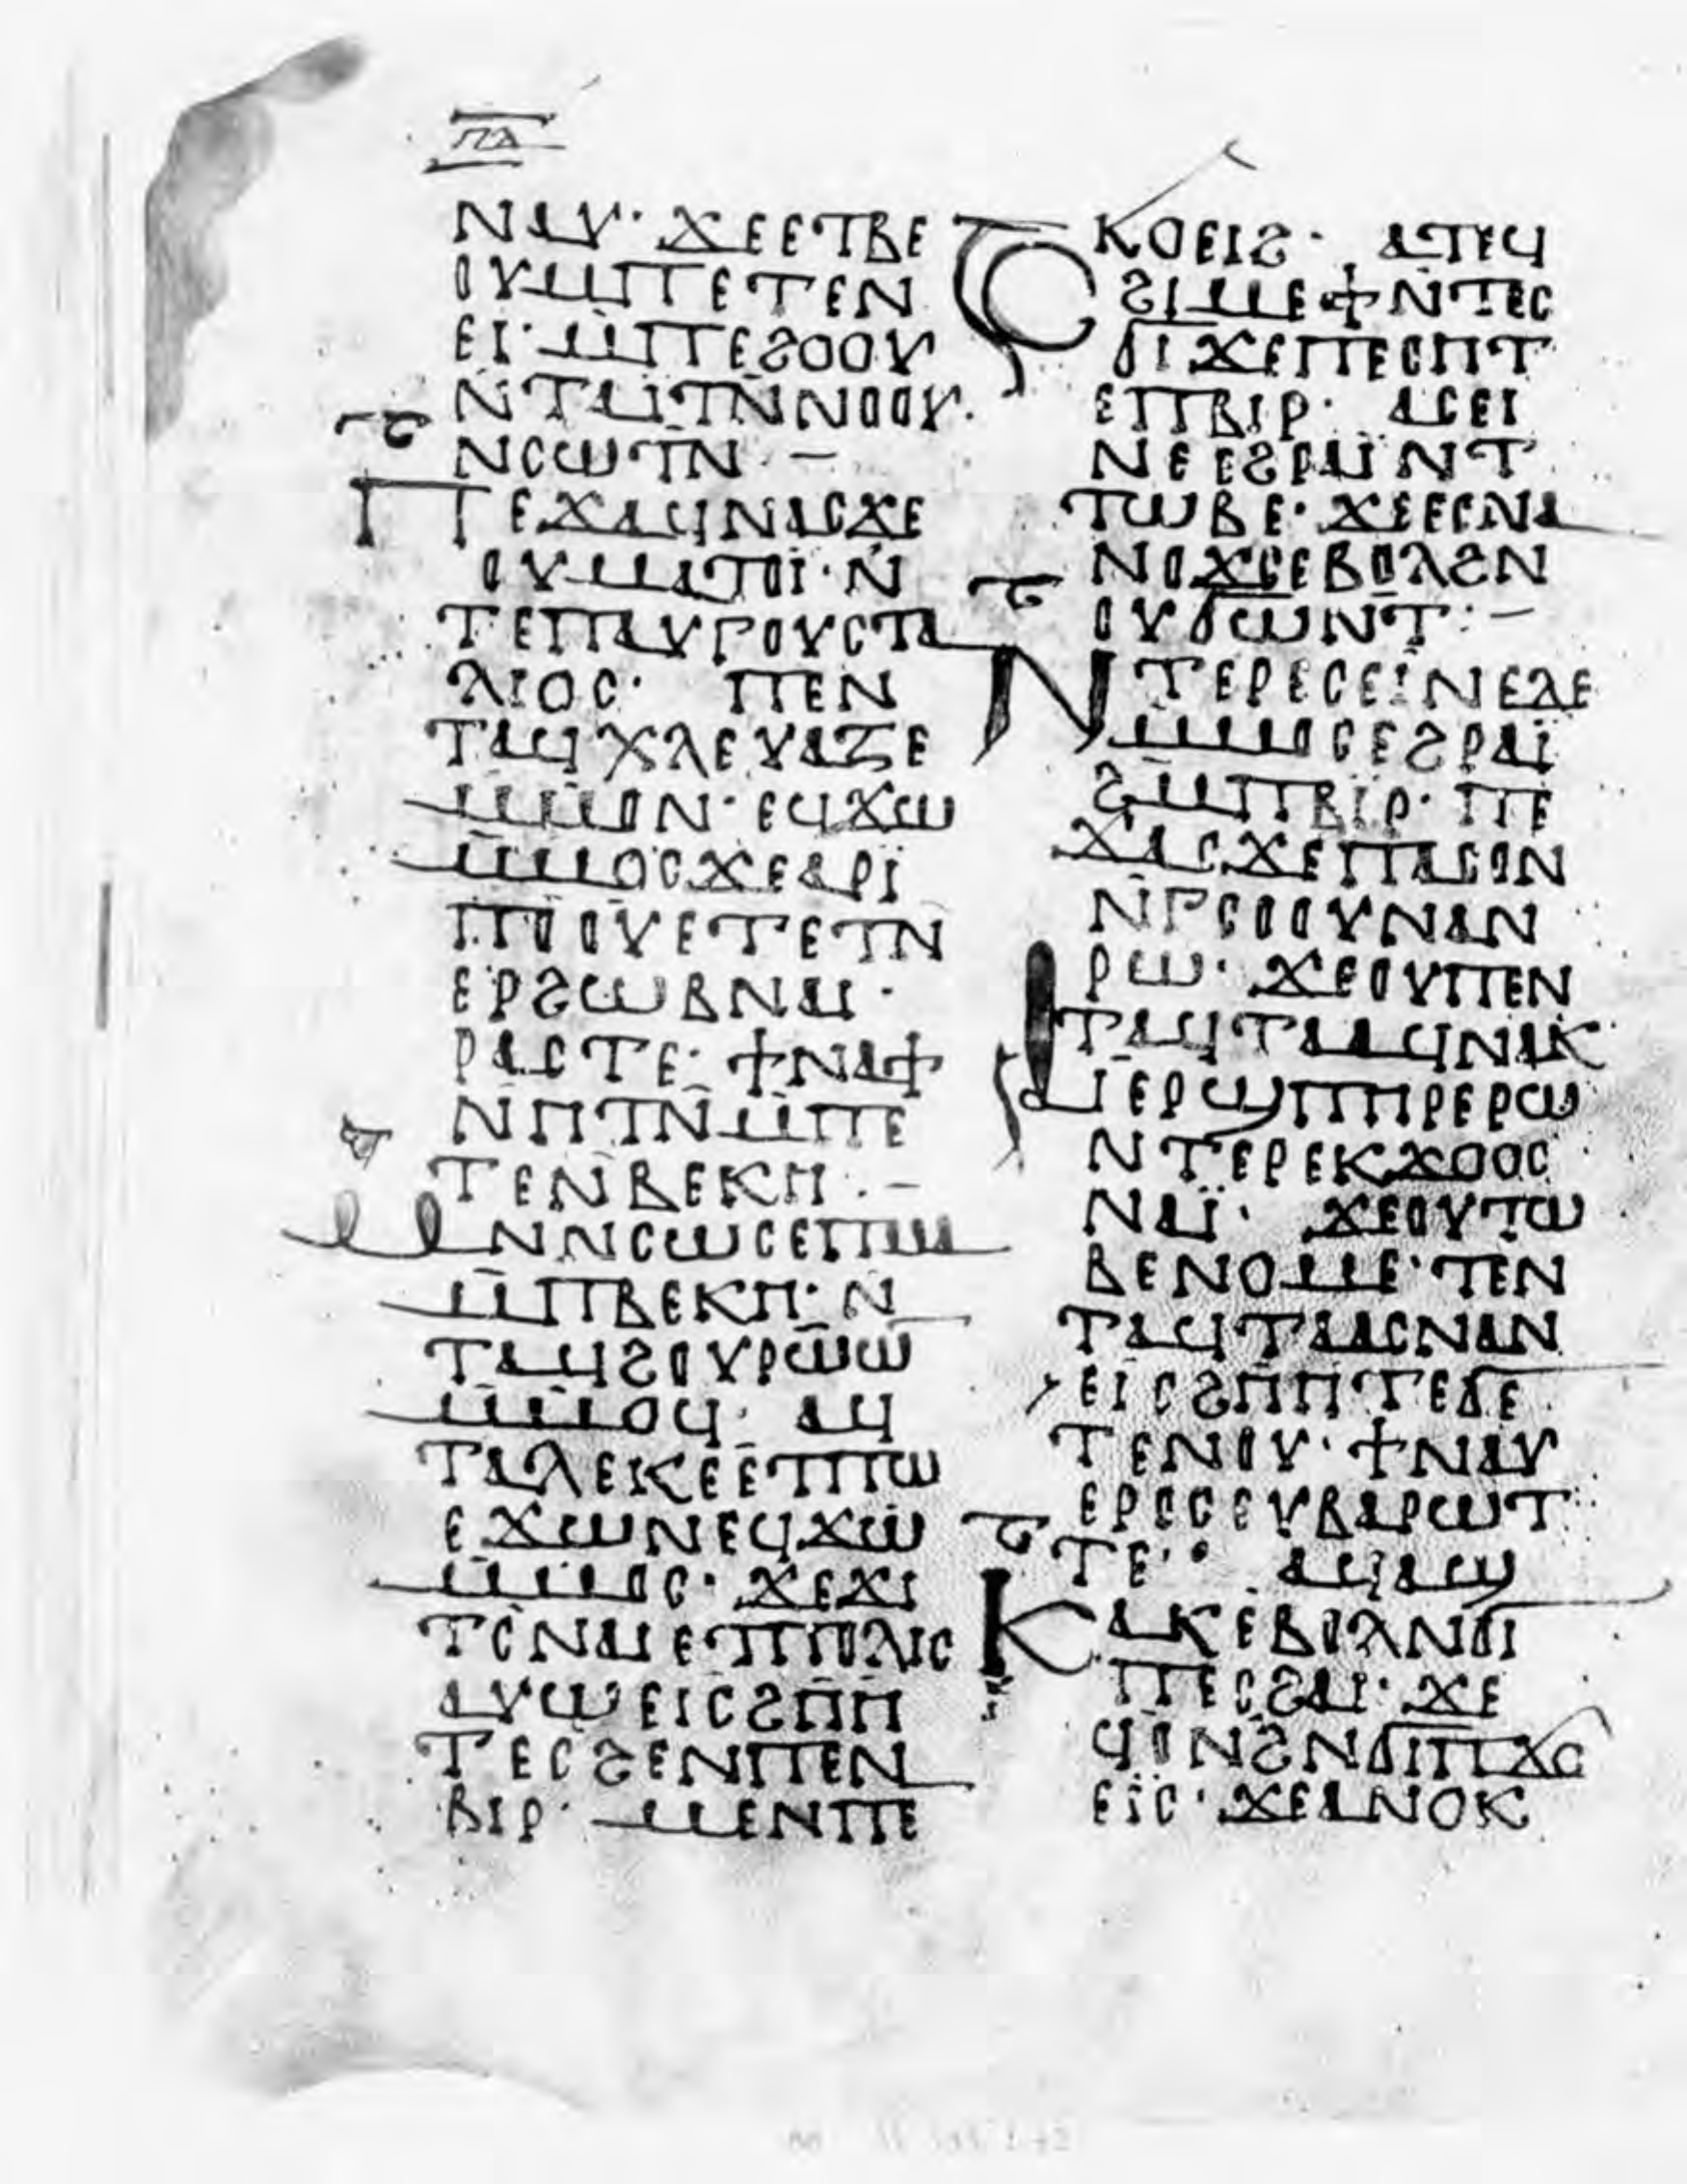 ⲡⲁ
ⲛⲁⲩ· ϫⲉⲉⲧⲃⲉ
ⲟⲩⲙⲡⲉⲧⲉⲛ
ⲉⲓ· ⲙ̄ⲡⲉϩⲟⲟⲩ
ⲛ̄ⲧⲁⲓⲧⲛ̄ⲛⲟⲟⲩ·
ⲛⲥⲱⲧⲛ·–
ⲡⲉϫⲁϥⲛⲁⲥϫⲉ
ⲟⲩⲙⲁⲧⲟⲓ· ⲛ̄
ⲧⲉⲡⲁⲩⲅⲟⲩⲥⲧⲁ
ⲗⲓⲟⲥ· ⲡⲉⲛ
ⲧⲁϥⲭⲗⲉⲩⲁⲍⲉ
ⲙ̄ⲙⲟⲛ· ⲉϥϫⲱ
ⲙ̄ⲙⲟⲥϫⲉⲁⲣⲓ̈
ⲡⲟⲟⲩⲉⲧⲉⲧⲛ
ⲉⲣϩⲱⲃⲛⲁⲓ·
ⲣⲁⲥⲧⲉ· ϯⲛⲁϯ
ⲛⲏⲧⲛ̄ⲙ̄ⲡⲉ
ⲧⲉⲛⲃⲉⲕⲏ·–
ⲙⲛⲛⲥⲱⲥⲉⲡⲙⲁ
ⲙ̄ⲡⲃⲉⲕⲏ· ⲛ̄
ⲧⲁϥϩⲟⲩⲣⲱⲱ
ⲙ̄ⲙⲟϥ· ⲁϥ
ⲧⲁⲗⲉⲕⲉⲉⲧⲡⲱ
ⲉϫⲱⲛⲉϥϫⲱ
ⲙ̄ⲙⲟⲥ· ϫⲉϫⲓ
ⲧⲥⲛⲁⲓⲉⲧⲡⲟⲗⲓⲥ
ⲁⲩⲱⲉⲓⲥϩⲏⲏ
ⲧⲉⲥϩⲉⲛⲡⲉⲛ
ⲃⲓⲣ· ⲙⲉⲛⲡⲉ
ⲕⲟⲉⲓϩ· ⲁⲧⲉϥ
ⲥϩⲓⲙⲉϯⲛⲧⲉⲥ
ϭⲓϫⲉⲡⲉⲥⲏⲧ
ⲉⲡⲃⲓⲣ· ⲁⲥⲉⲓ
ⲛⲉⲉϩⲣⲁⲓ̈ⲛⲧ
ⲧⲱⲃⲉ· ϫⲉⲉⲥⲛⲁ
ⲛⲟϫⲥⲉⲃⲟⲗϩⲛ
ⲟⲩϭⲱⲛⲧ:–
ⲛⲧⲉⲣⲉⲥⲉⲓ̈ⲛⲉⲇⲉ
ⲙ̄ⲙⲟⲥⲉϩⲣⲁⲓ̈
ϩⲙ̄ⲡⲃⲓⲣ· ⲡⲉ
ϫⲁⲥϫⲉⲡⲁⲥⲟⲛ
ⲛ̄ⲅⲥⲟⲟⲩⲛⲁⲛ
ⲣⲱ· ϫⲉⲟⲩⲡⲉⲛ
ⲧⲁϥⲧⲁⲁϥⲛⲁⲕ
ⲁⲓⲉⲣϣⲡⲏⲣⲉⲣⲱ
ⲛⲧⲉⲣⲉⲕϫⲟⲟⲥ
ⲛⲁⲓ̈· ϫⲉⲟⲩⲧⲱ
ⲃⲉⲛⲟⲙⲉ· ⲧⲉⲛ
ⲧⲁϥⲧⲁⲁⲥⲛⲁⲛ
ⲉⲓⲥϩⲏⲏⲧⲉϭⲉ
ⲧⲉⲛⲟⲩ· ϯⲛⲁⲩ
ⲉⲣⲟⲥⲉⲩⲃⲁⲣⲱⲧ
ⲧⲉ·· ⲁϥⲁϣ
ⲕⲁⲕⲉⲃⲟⲗⲛϭⲓ
ⲡⲉⲥϩⲁⲓ· ϫⲉ
ϥⲟⲛϩⲛϭⲓⲡϫⲟ
ⲉⲓ̈ⲥ· ϫⲉⲁⲛⲟⲕ